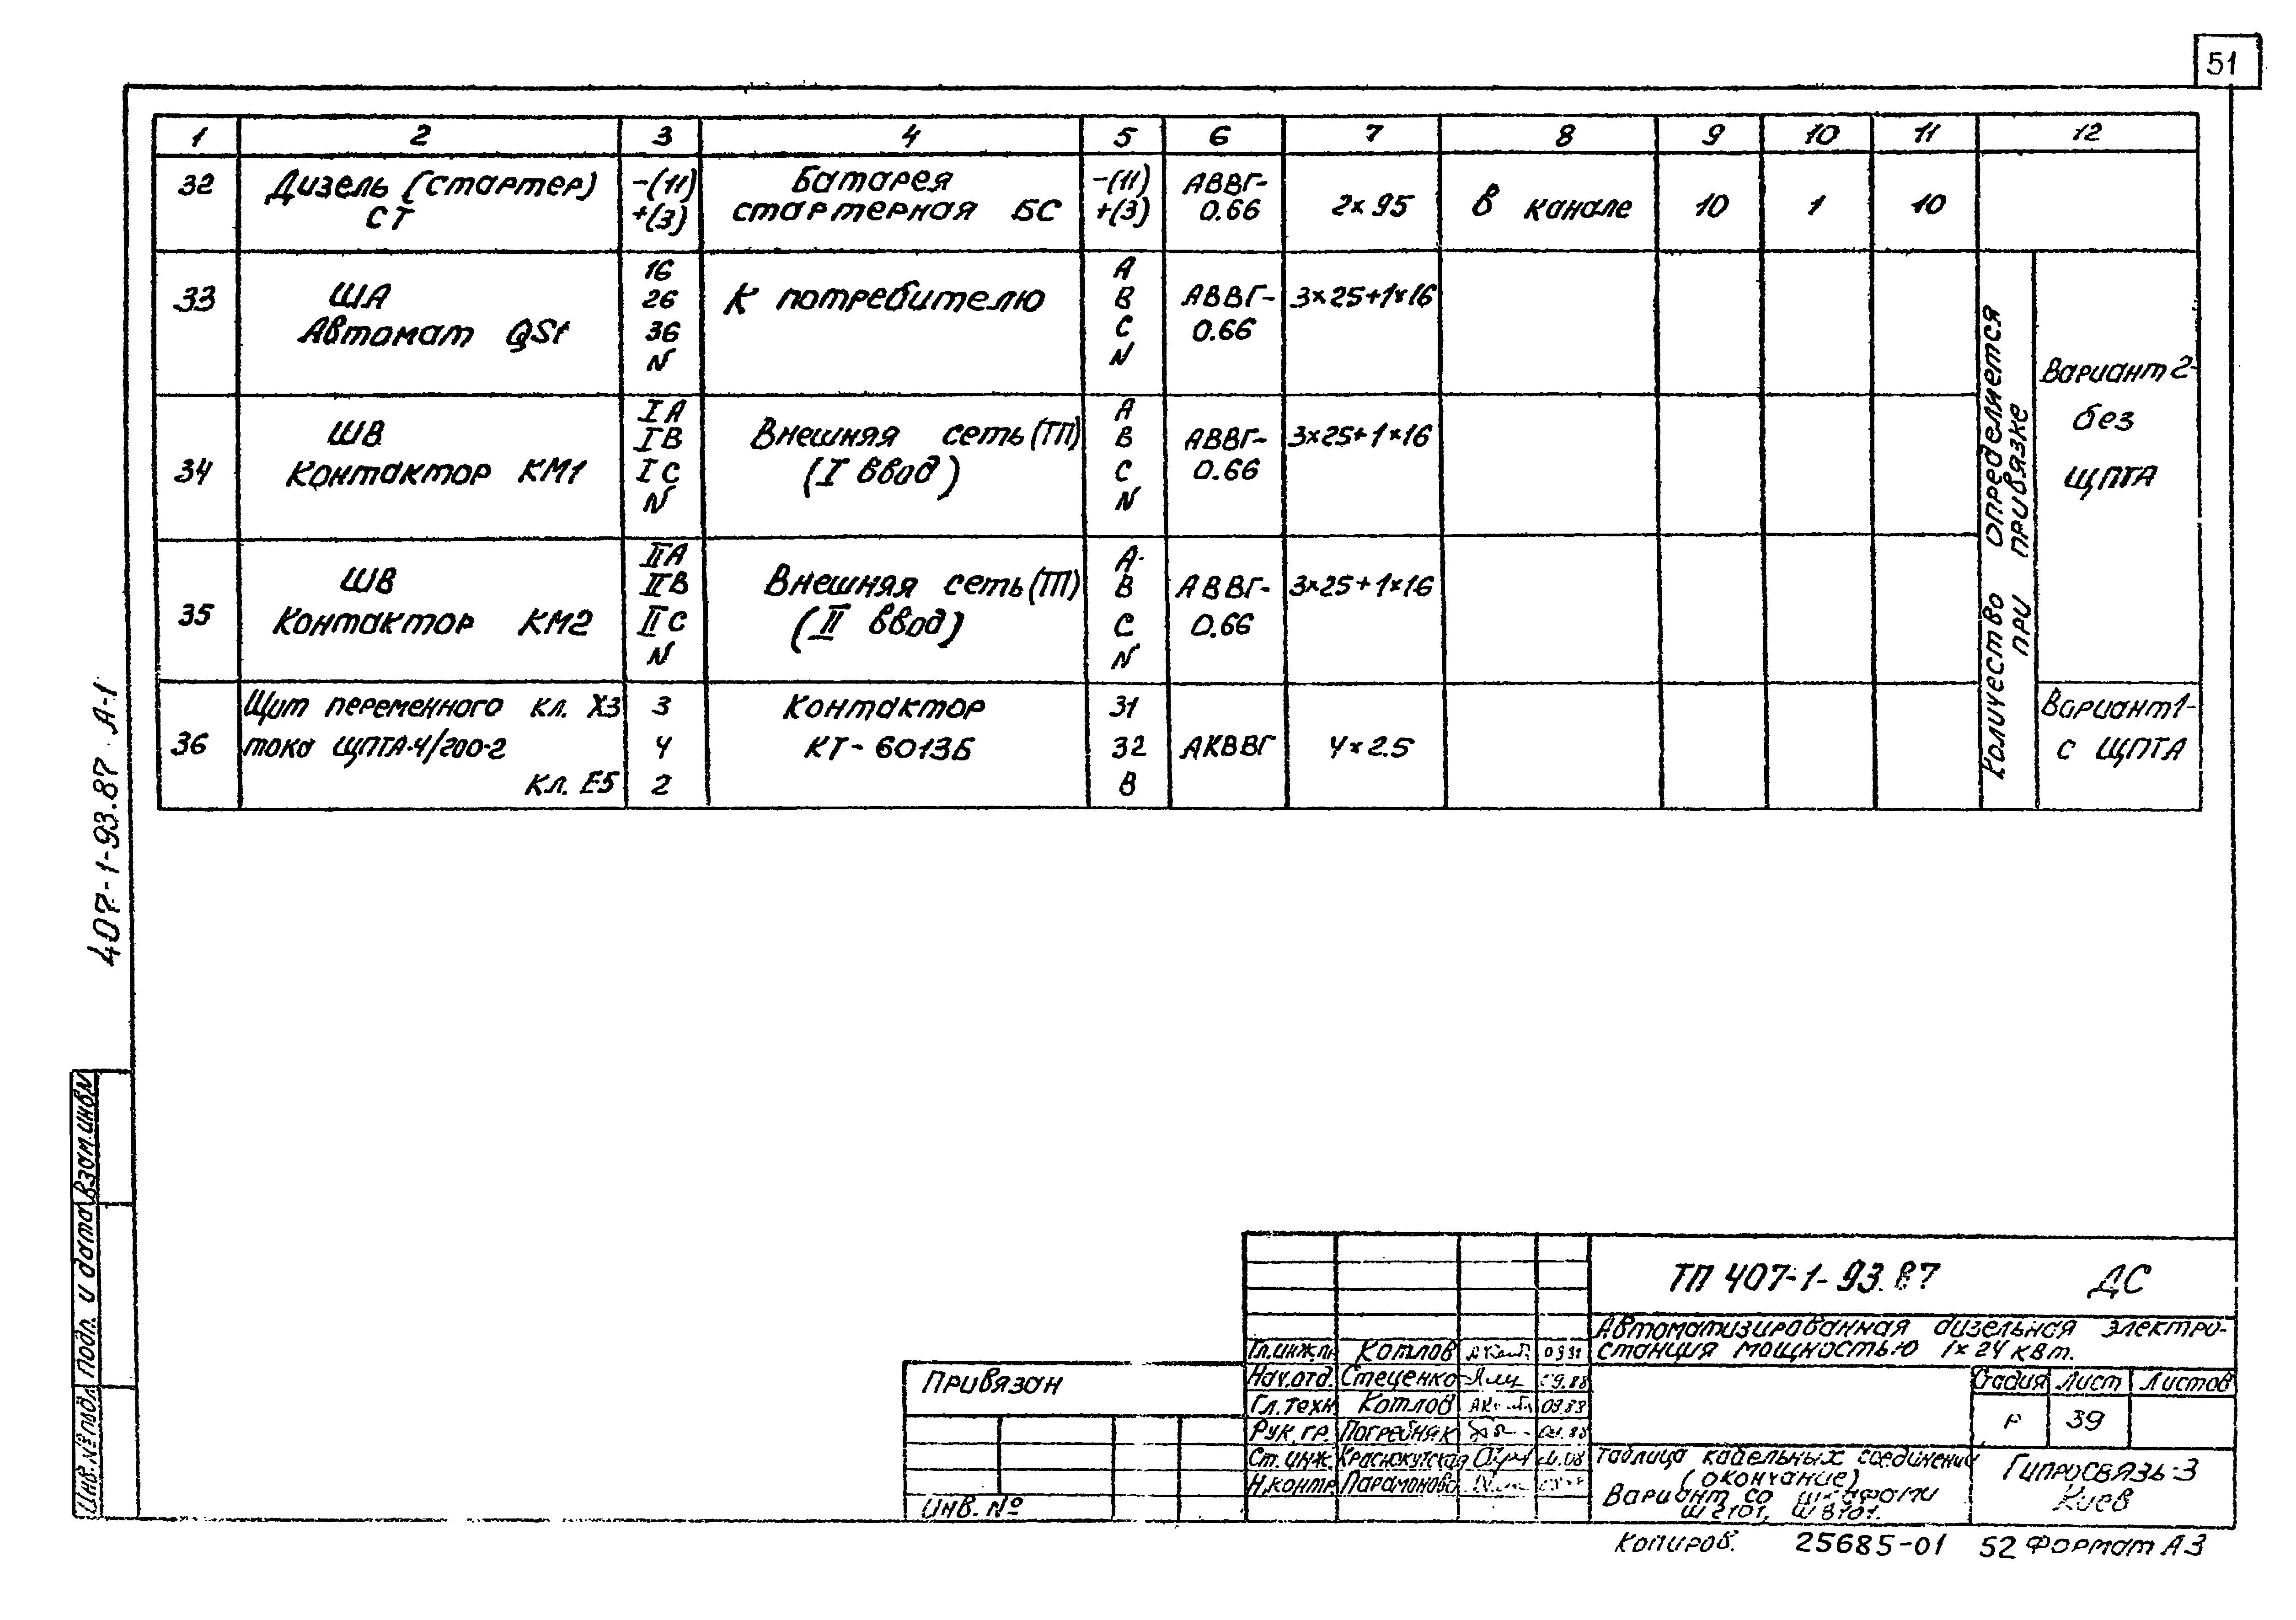 51
1 2 3 4 5 6 7 8 9 10 11 12
32 Дизель (стартер) СТ -(11) +(3) Батарея стартерная БС -(11) +(3) АВВГ-0.66 2×95 В канале 10 1 10
33 ША Автомат QSf 1б 2б 3б N К потребителю А В С N АВВГ-0.66 3×25+1×16
34 ШВ Контактор КМ1 I А I В I С N Внешняя сеть (ТП) (I ввод) А В С N АВВГ-0.66 3×25+1×16
35 ШВ Контактор КМ2 II А II В II С N Внешняя сеть (ТП) (II ввод) А В С N АВВГ-0.66 3×25+1×16
36 Щит переменного кл. Х3 тока ЩПТА-4/200-2 Кл. Е5 3 4 2 Контактор КТ-6013Б 31 32 В АКВВГ 4×2.5
Количество определяется
при привязке
Вариант 2-
без
ЩПТА
Вариант 1-
с ЩПТА
407-1-93.87 А-1
Взам.инв.N
Подп. и дата
Инв.№ подл.
Привязан
Инв. №
Гл.инж.пр. Котлов
Нач.отд. Стеценко 09.88
Гл.техн. Котлов 09.88
Рук.гр. Погребняк
Ст.инж. Краснокутская
Н.контр. Парамонова
ТП 407-1-93.87 ДС
Автоматизированная дизельная электро-
станция мощностью 1×24 кВт.
Стадия Лист Листов
Р 39
Таблица кабельных соединений
(окончание)
Вариант со шкафами
Гипросвязь-3
Киев
Копиров. 25685-01 52 Формат А3